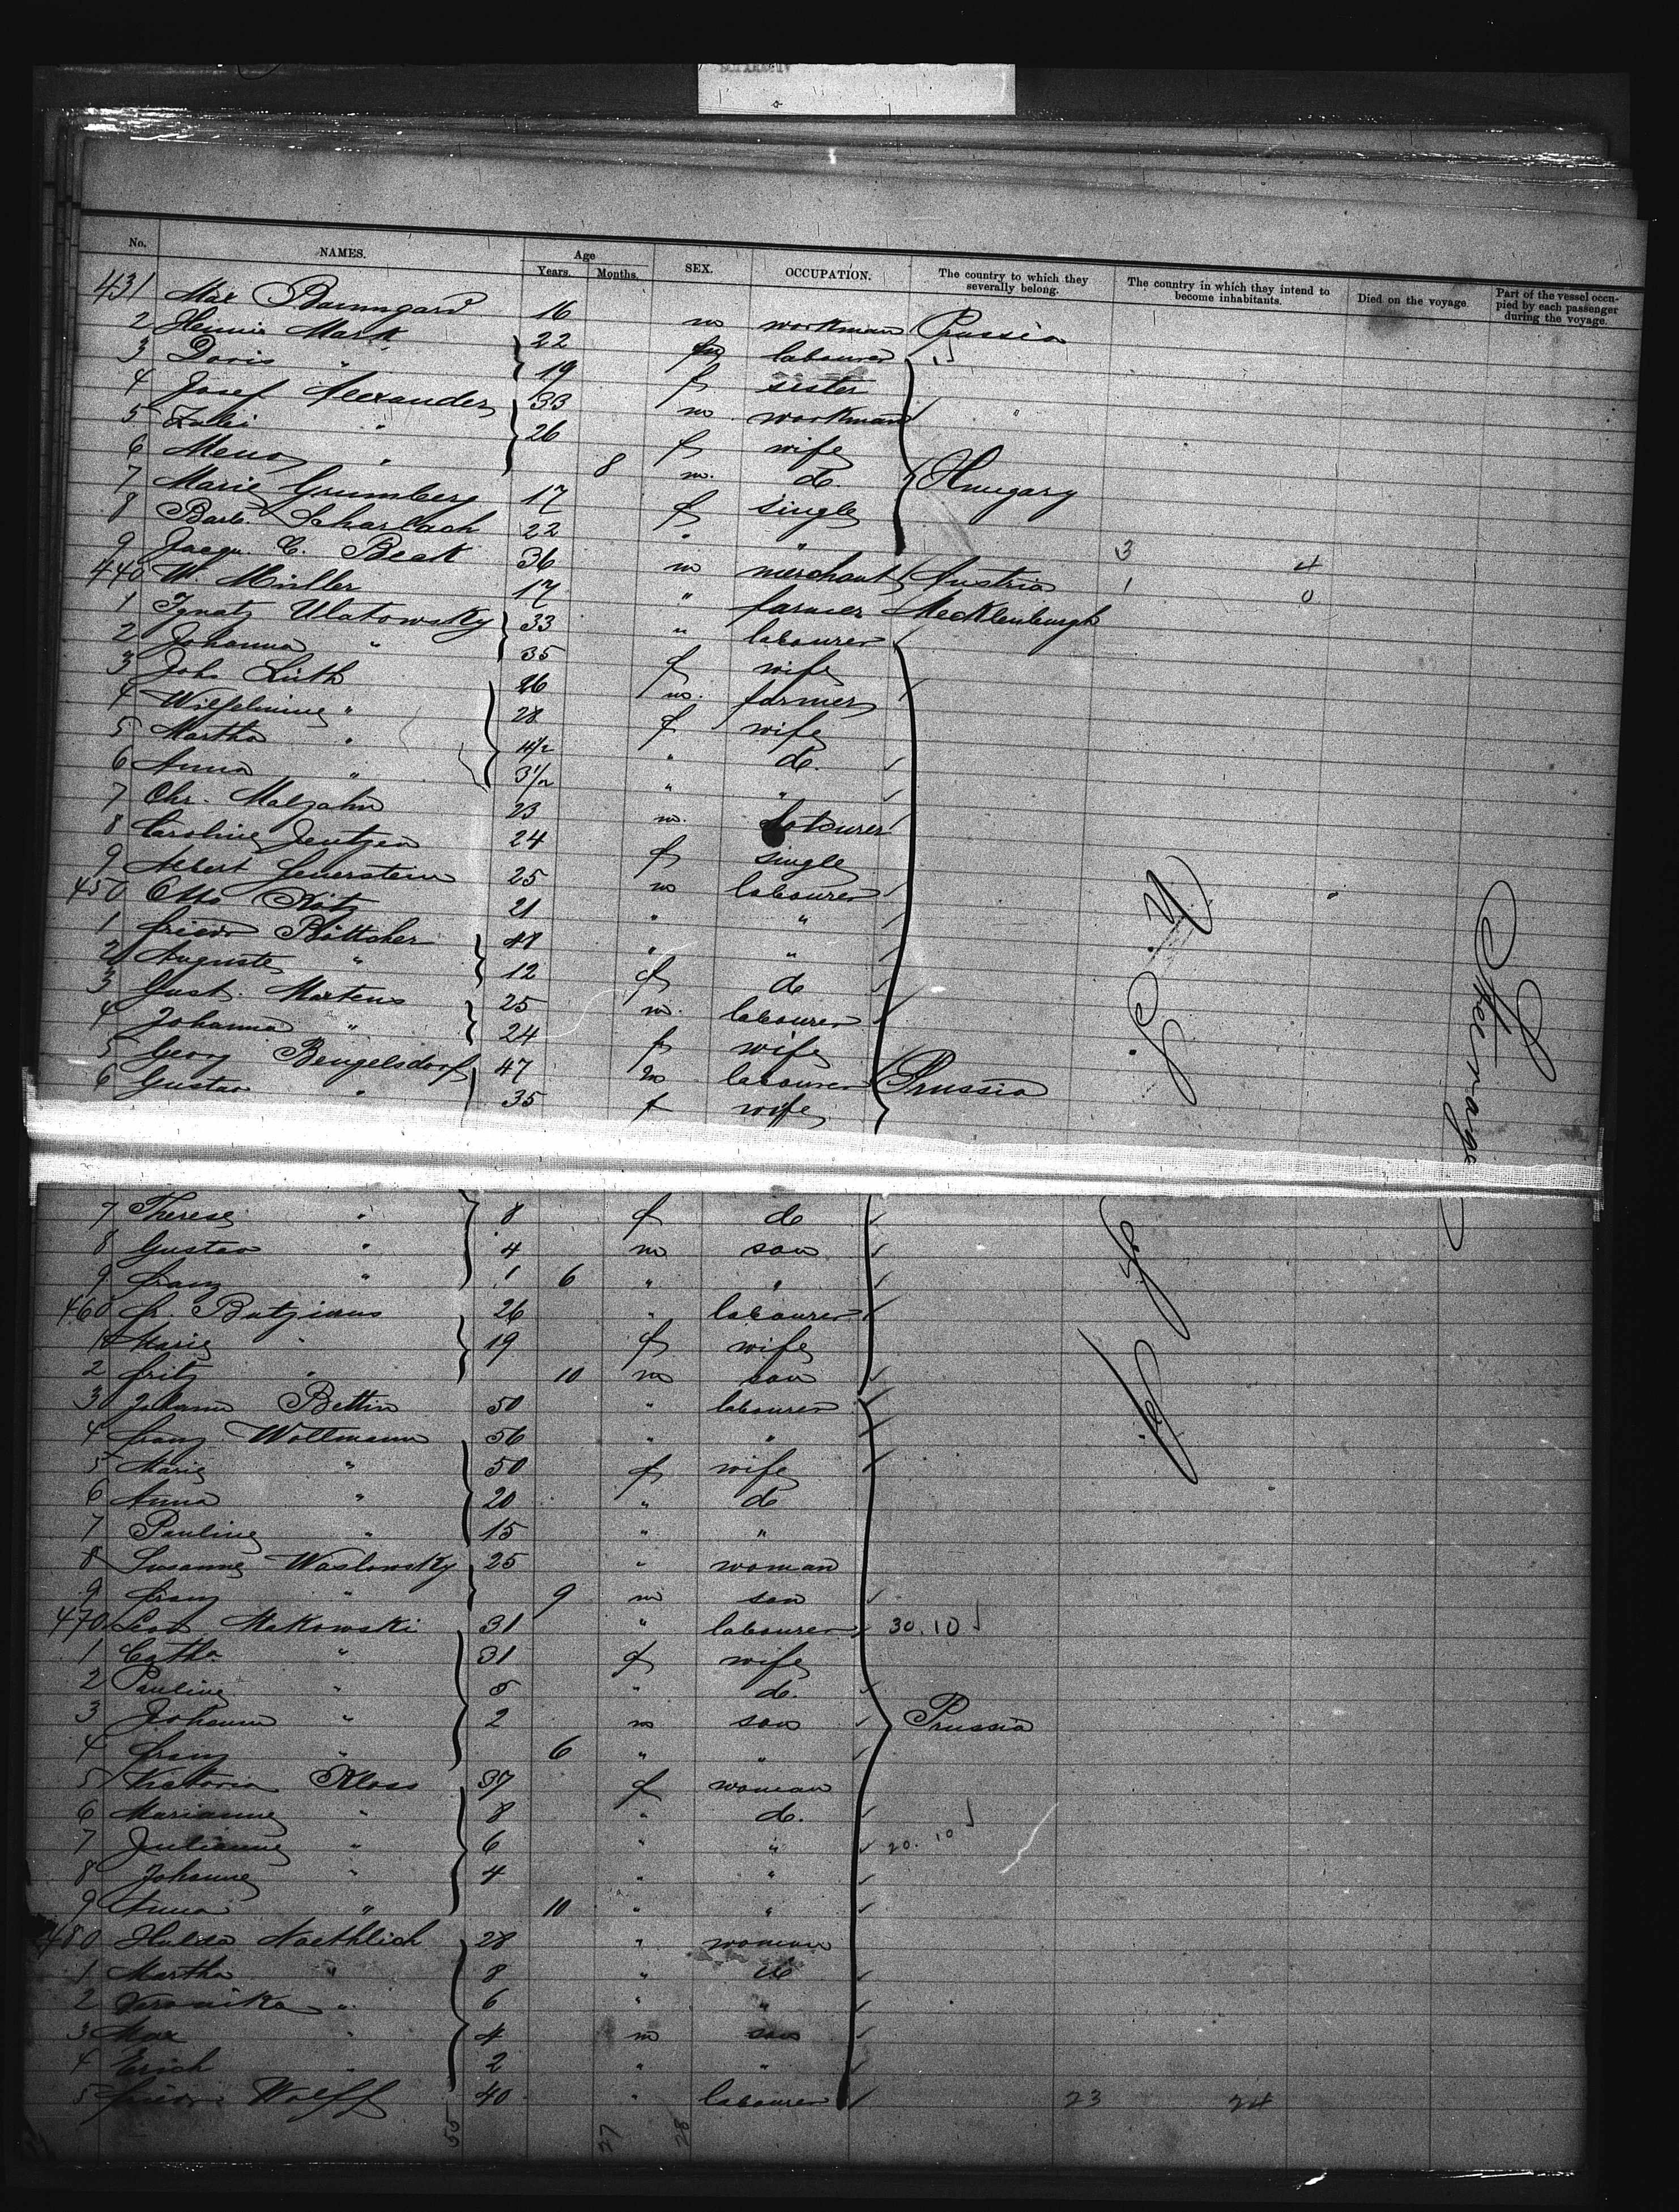 No. NAMES. Age Years. Months. SEX. OCCUPATION. The country to which they severally belong. The country in which they intend to become inhabitants. Died on the voyage. Part of the vessel occupied by each passenger during the voyage.
431 Max Baumgard 16 m workman Prussia
2 Mark 22 labourer
3 Doris " 19 f sister
4 Josef Alexander 33 m workman "
5 " 26 f wife
6 " 8 m. do.
7 Marie Grumberg 17 f single Hungary
8 Barb. Scharbach 22 " "
9 Jacqu. C. Beck 36 m merchant Austria 3 4
440 W. Müller 17 " farmer Mecklenburgh 1 0
1 Ignatz Ulatowsky 33 " labourer
2 Johanna " 35 f wife
3 Joh. Lüth 26 m. farmer
4 Wilhelmine " 28 f wife
5 Martha " 4 1/2 " do.
6 Anna " 3 1/2 " "
7 Chr. Malzahn 23 m. labourer
8 Caroline Jentzen 24 f single
9 Albert Feuerstein 25 m labourer
450 Otto 21 " "
1 Friedr Böttcher 48 " "
2 Auguste " 12 f do
3 Gust. Martens 25 m. labourer
4 Johanna " 24 f wife
5 Georg Bengelsdorf 47 m labourer Prussia
6 Gustav " 35 f wife
7 Therese " 8 f do
8 Gustav " 4 m son
9 Franz " 1 6 " "
460 Fr. Butzinus 26 " labourer
1 Marie " 19 f wife
2 Fritz " 10 m son
3 Johann Bettin 50 " labourer
4 Franz Woltmann 56 " "
5 Marie " 50 f wife
6 Anna " 20 " do
7 Pauline " 15 " "
8 Susanne Waslowsky 25 " woman
9 Franz " 9 m son
470 Leo Makowski 31 " labourer 30.10
1 Catha. " 31 f wife
2 Pauline " 5 " do.
3 Johann " 2 m son Prussia
4 Franz " 6 " "
5 Victoria Kloss 37 f woman
6 Marianne " 8 " do.
7 Julianne " 6 " " 20.10
8 Johanne " 4 " "
9 Anna " 10 " "
480 Hulda Naethlich 28 " woman
1 Martha " 8 " do
2 Veronika " 6 " "
3 Max " 4 m son
4 Erich " 2 " "
5 Friedr. Wolff 40 " labourer 23 24
55 27 28
Steerage